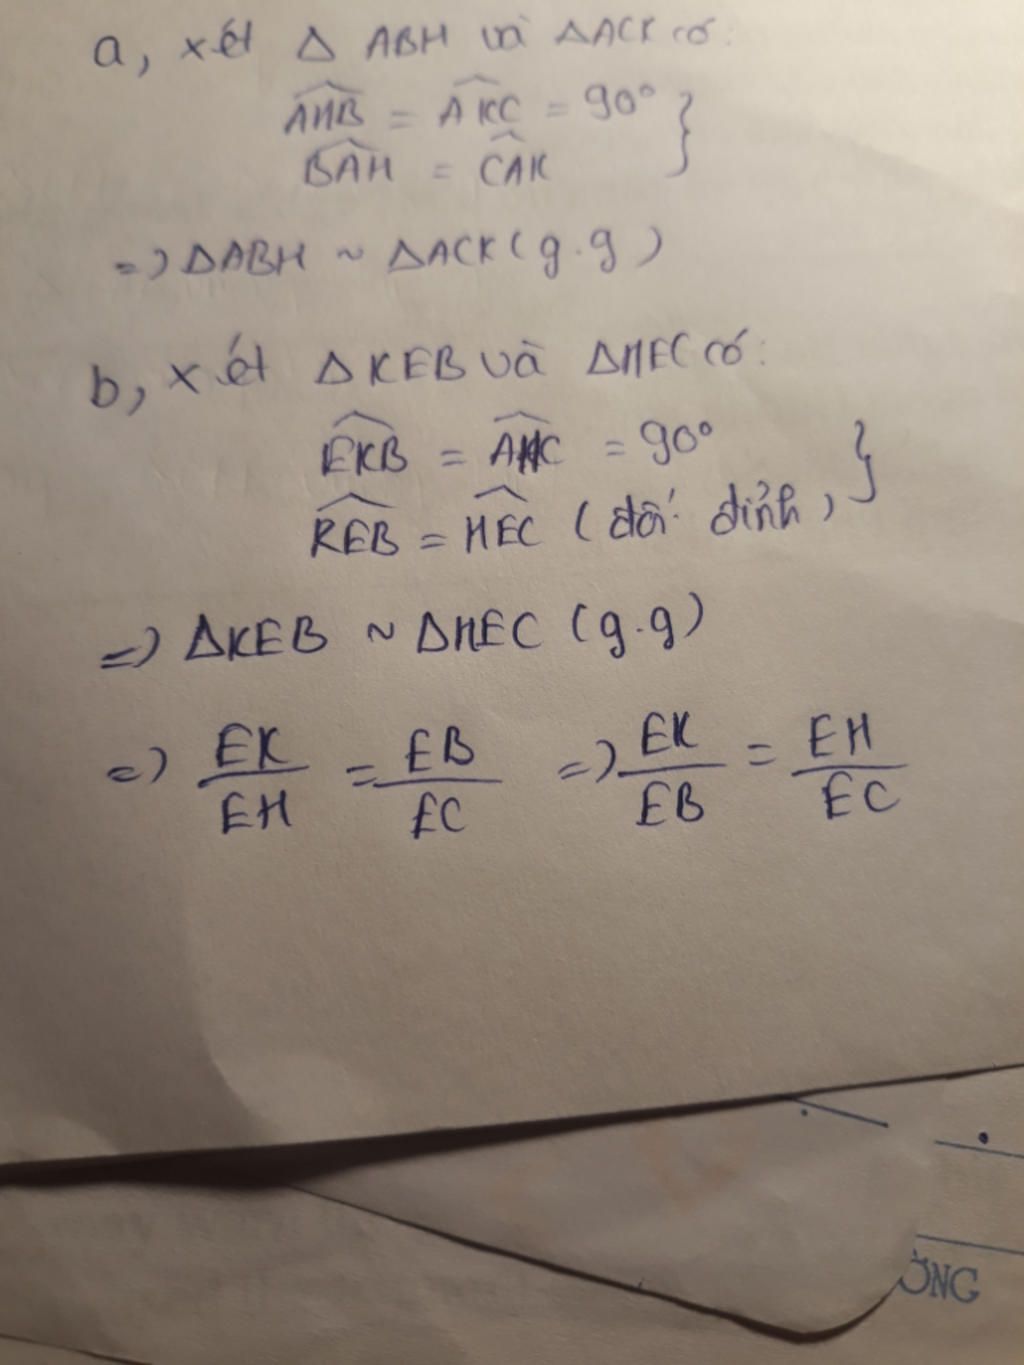 a, xét Δ ABH và ΔACK có:
\widehat{AHB} = \widehat{AKC} = 90° }
\widehat{BAH} = \widehat{CAK}
=> ΔABH ~ ΔACK (g.g)
b, xét ΔKEB và ΔHEC có:
\widehat{EKB} = \widehat{AHC} = 90° }
\widehat{KEB} = \widehat{HEC} (đối đỉnh)
=> ΔKEB ~ ΔHEC (g.g)
=> EK/EH = EB/EC => EK/EB = EH/EC